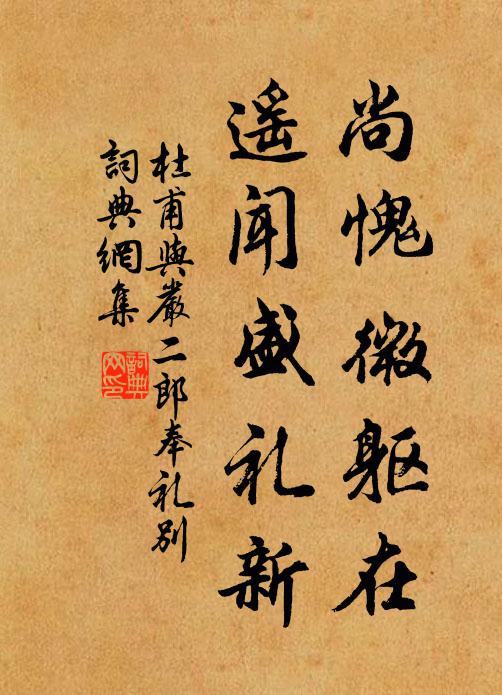 尚愧微躯在
遥闻盛礼新
杜甫與嚴二郎奉礼别
詞典網集
詞典
网印